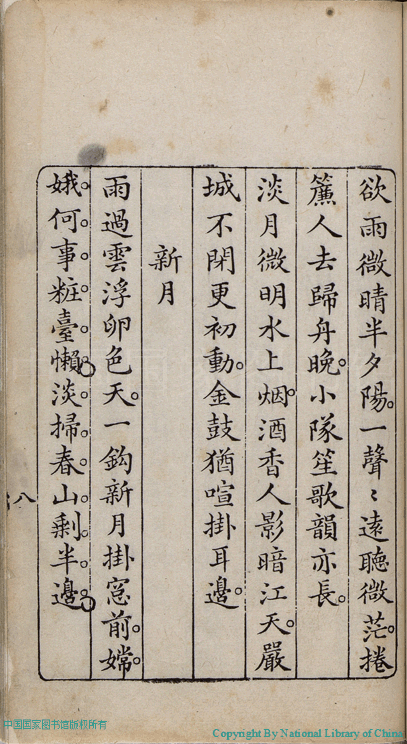 欲雨微晴半夕陽。一聲〻遠聽微茫。捲
簾人去歸舟晚。小隊笙歌韻亦長。
淡月微明水上烟。酒香人影暗江天。嚴
城不閉更初動。金鼓猶喧掛耳邊。
新月
雨過雲浮卵色天。一鈎新月掛窓前。嫦
娥何事粧臺懶。淡掃春山剩半邊。
八
中国国家图书馆版权所有
Copyright By National Library of China